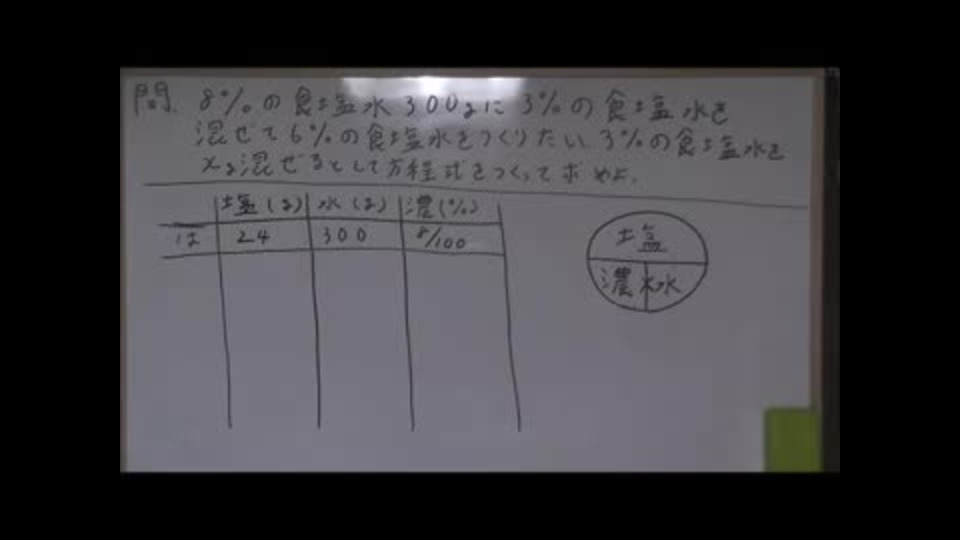 問. 8%の食塩水300gに3%の食塩水を
混ぜて6%の食塩水をつくりたい 3%の食塩水を
xg混ぜるとして方程式をつくって求めよ.
塩(g) 水(g) 濃(%)
は 24 300 8/100
塩
濃×水